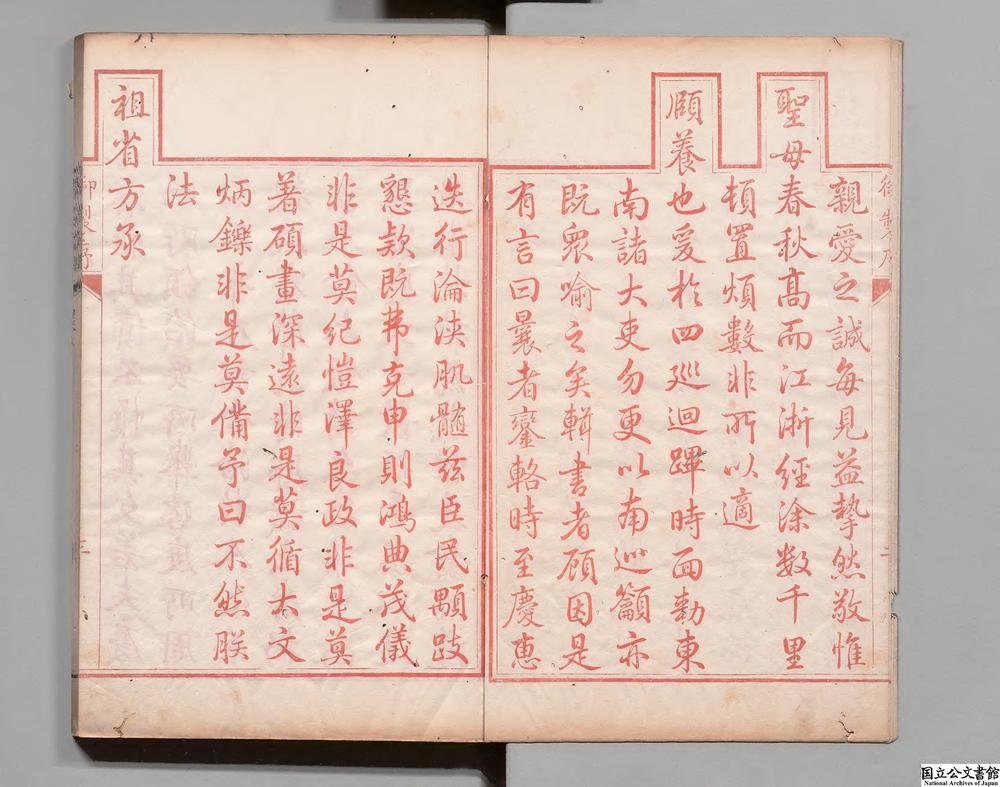 御製序
親愛之誠每見益摯然敬惟
聖母春秋高而江浙經涂数千里
頓置煩數非所以適
頤養也爰於四巡迴蹕時面勅東
南諸大吏勿更以南巡籲亦
既衆喻之矣輯書者顧因是
有言曰曩者鑾輅時至慶惠
迭行淪浹肌髓茲臣民顒跂
懇欵既弗克申則鴻典茂儀
非是莫紀愷澤良政非是莫
著碩畫深遠非是莫循大文
炳鑠非是莫備予曰不然朕
法
祖省方承
御製序
国立公文書館
National Archives of Japan